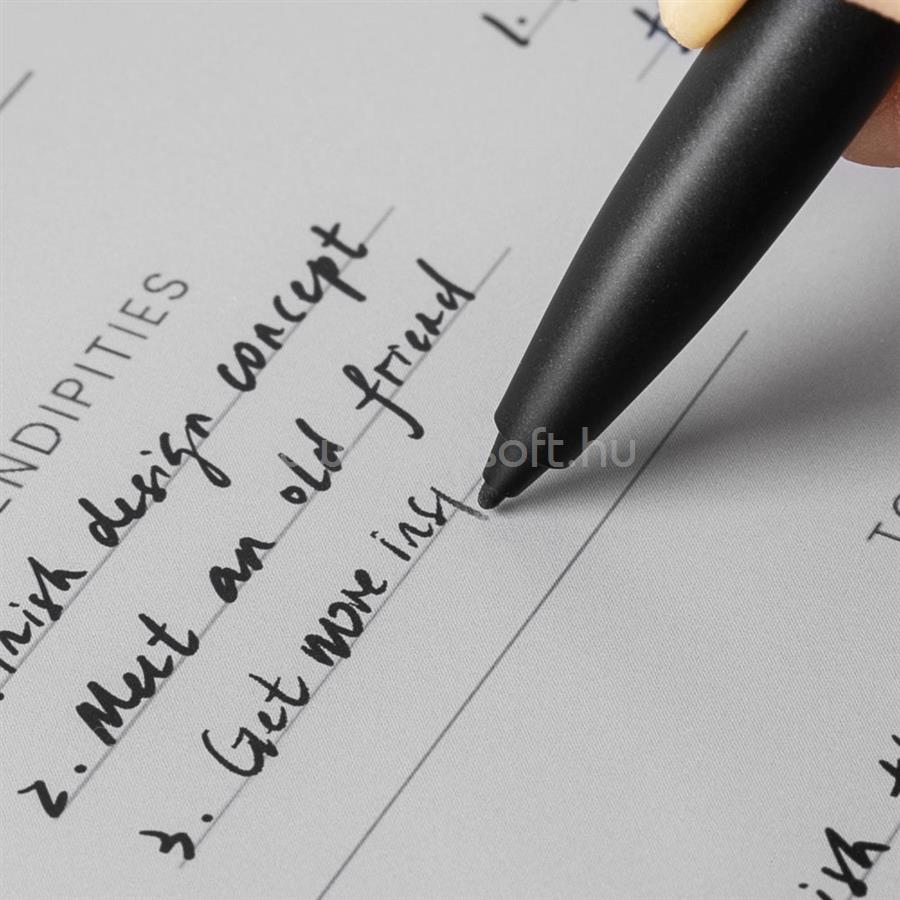 1.
ENDIPITIES
nish design concept
2. Meet an old friend
3. Get more ins
ish
soft.hu